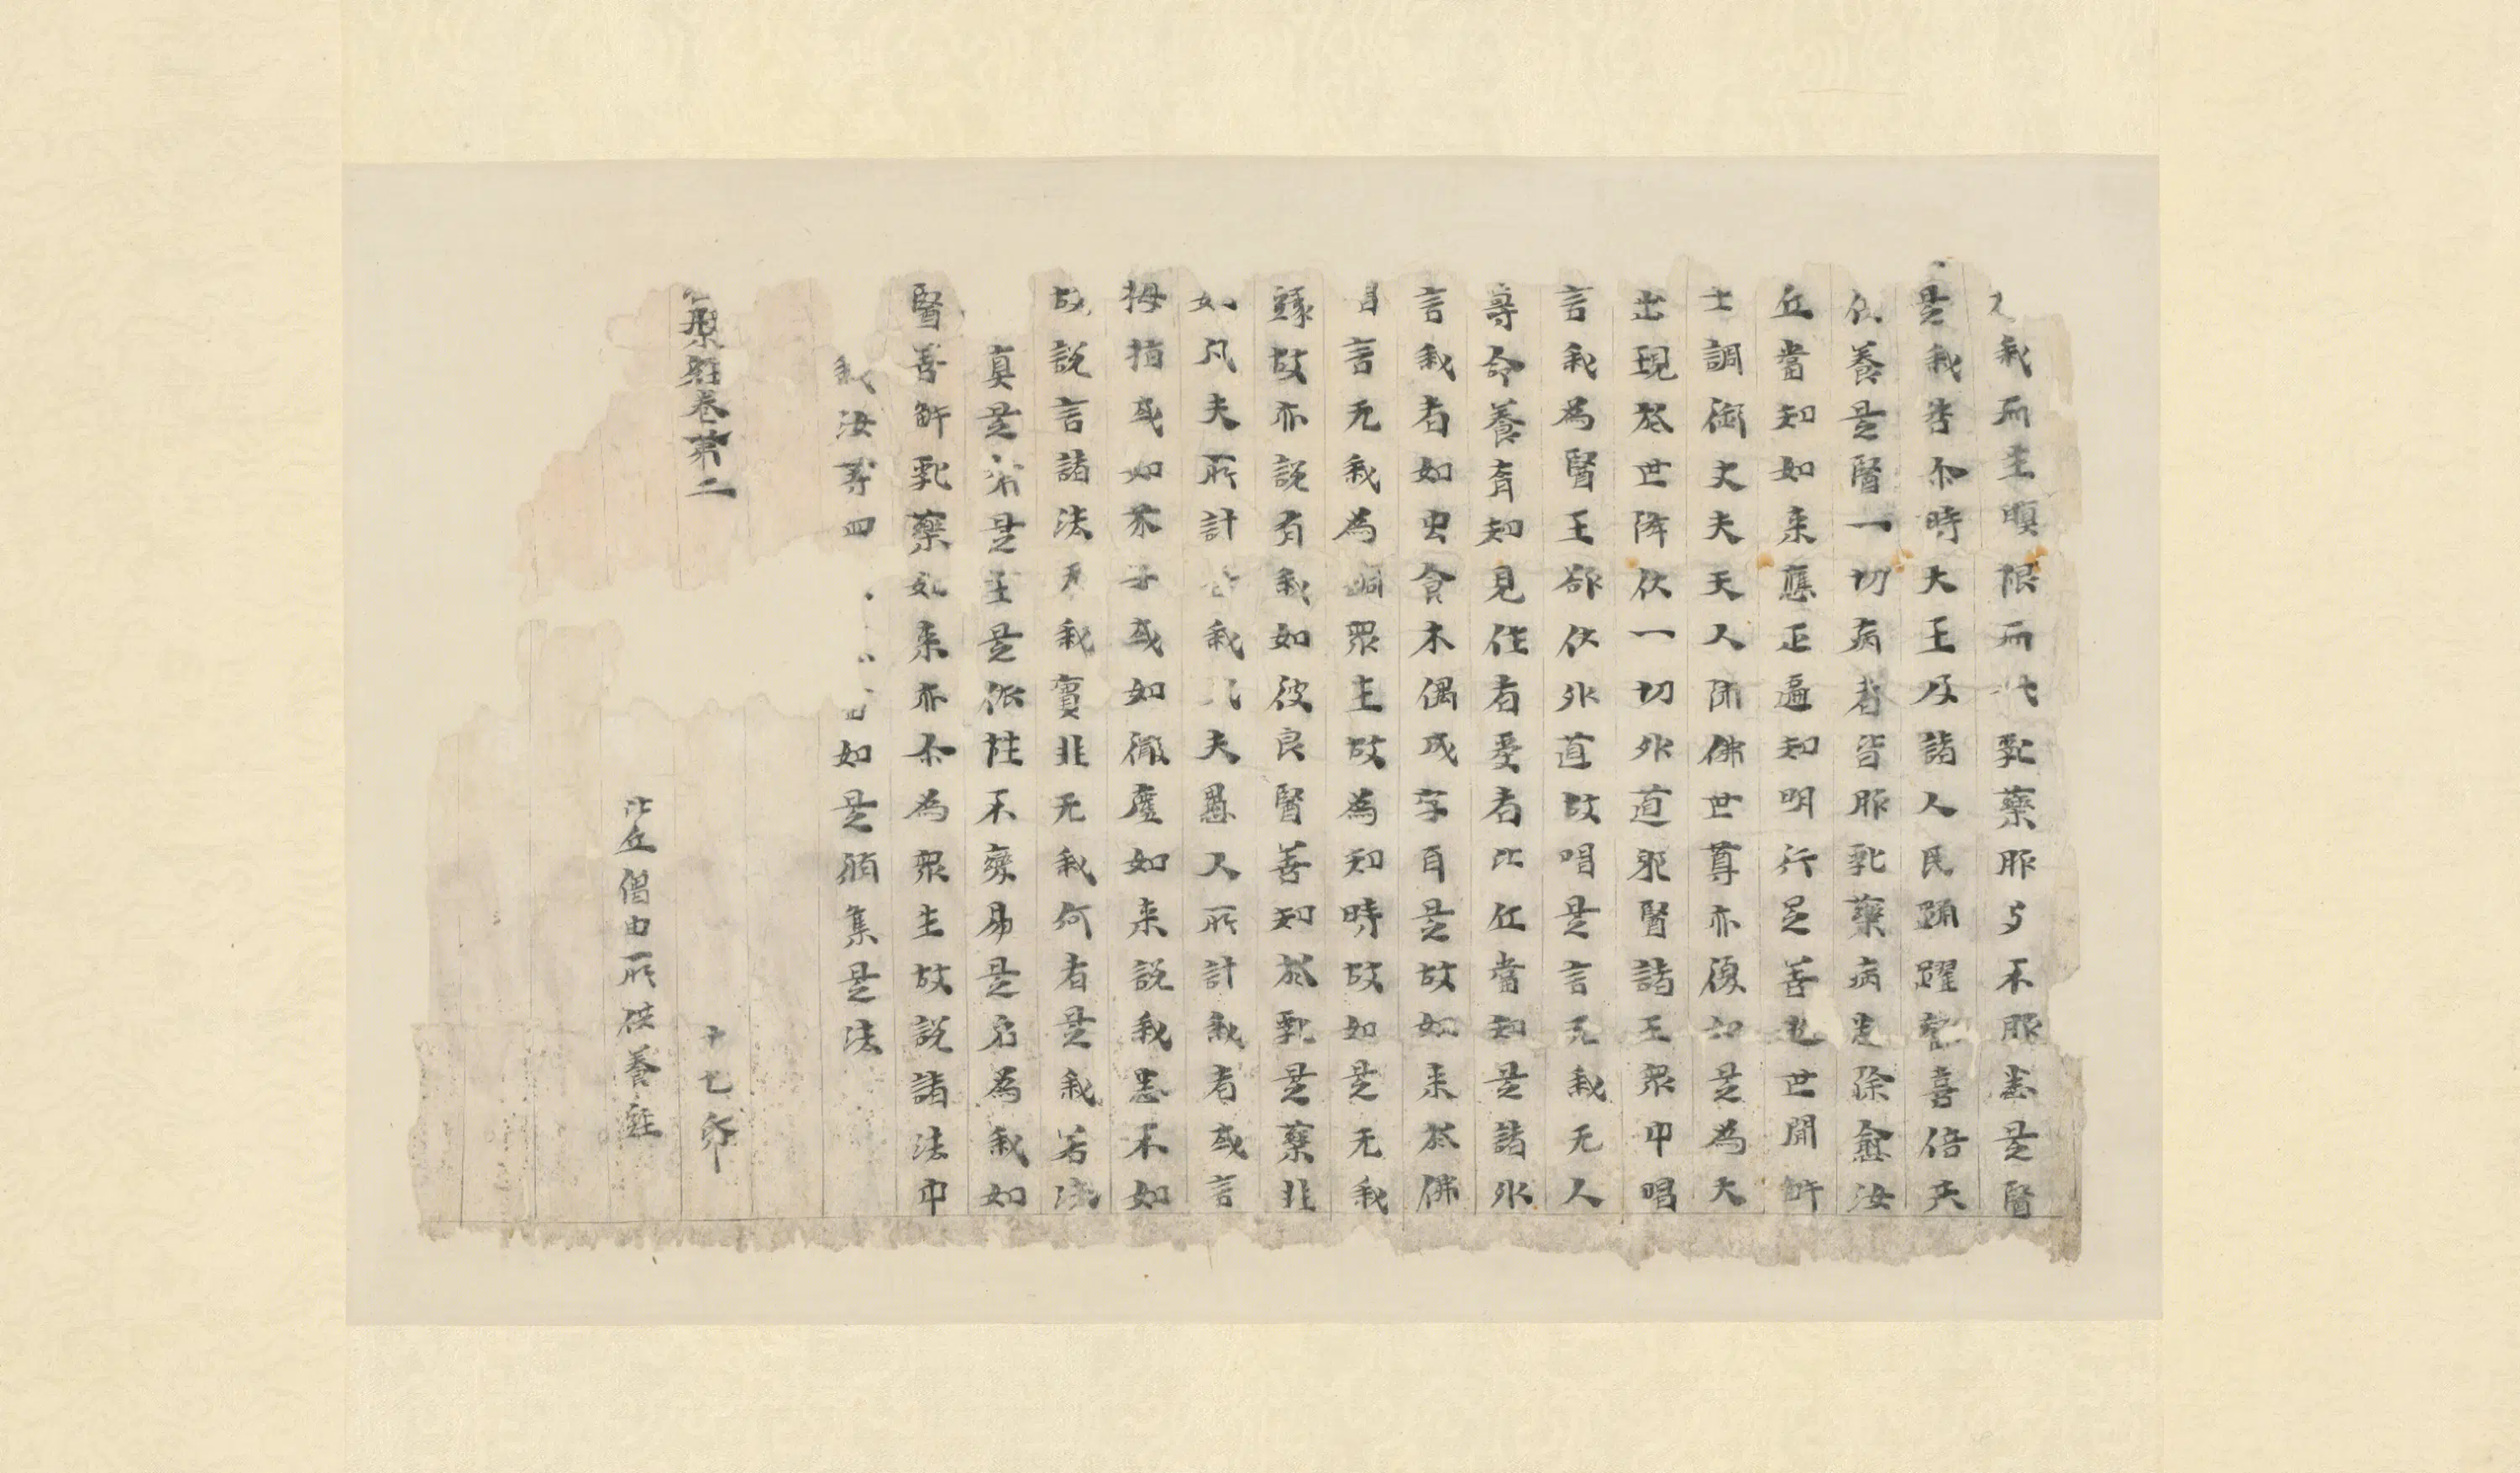 我而生瞋恨而代乳藥服与不服悉是醫
是我咎尒時大王及諸人民踊躍歡喜倍共
供養是醫一切病者皆服乳藥病悉除愈汝
丘當知如来應正遍知明行足善逝世間解
士調御丈夫天人師佛世尊亦復如是為大
出現於世降伏一切外道邪醫諸王眾中唱
言我為醫王欲伏外道故唱是言无我无人
壽命養育知見作者受者比丘當知是諸外
言我者如虫食木偶成字耳是故如来於佛
言无我為調眾生故為知時故如是无我
緣故亦說有我如彼良醫善知於乳是藥非
如凡夫所計吾我凡夫愚人所計我者或言
拇指或如芥子或如微塵如来說我悉不如
故說言諸法无我實非无我何者是我若法
真是常是主是依性不變易是名為我如
醫善解乳藥如来亦尒為眾生故說諸法中
我汝等四當如是脩集是法
槃經卷第二
十七帋
比丘僧由所供養經